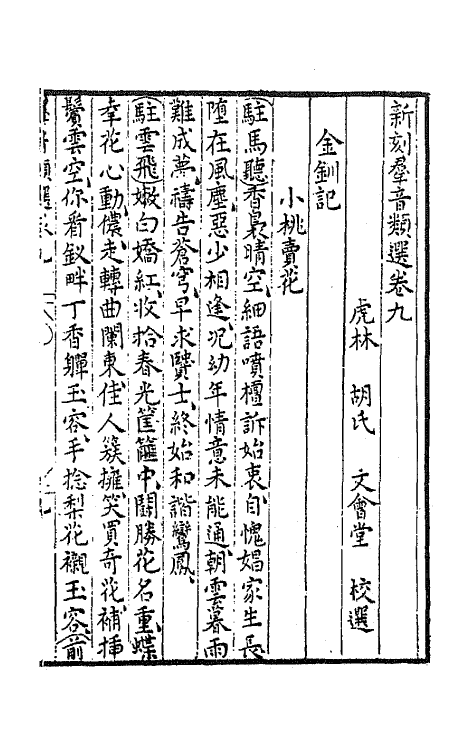 新刻羣音類選卷九
虎林 胡氏 文會堂 校選
金釧記
小桃賣花
駐馬聽香裊晴空細語噴檀訴始衷自愧娼家生長
墮在風塵惡少相逢況幼年情意未能通朝雲暮雨
難成夢禱告蒼穹早求賢士終始和諧鸞鳳
駐雲飛嫩白嬌紅收拾春光筐籠中鬪勝花名重蝶
幸花心動儂走轉曲闌東佳人簇擁笑買奇花補插
鬢雲空你看釵畔丁香軃玉容手捻梨花襯玉容前